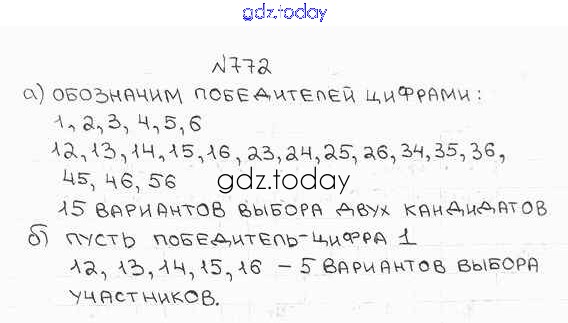 gdz.today
№772
а) ОБОЗНАЧИМ ПОБЕДИТЕЛЕЙ ЦИФРАМИ:
1, 2, 3, 4, 5, 6
12, 13, 14, 15, 16, 23, 24, 25, 26, 34, 35, 36,
45, 46, 56
gdz.today
15 ВАРИАНТОВ ВЫБОРА ДВУХ КАНДИДАТОВ
б) ПУСТЬ ПОБЕДИТЕЛЬ-ЦИФРА 1
12, 13, 14, 15, 16 – 5 ВАРИАНТОВ ВЫБОРА
УЧАСТНИКОВ.